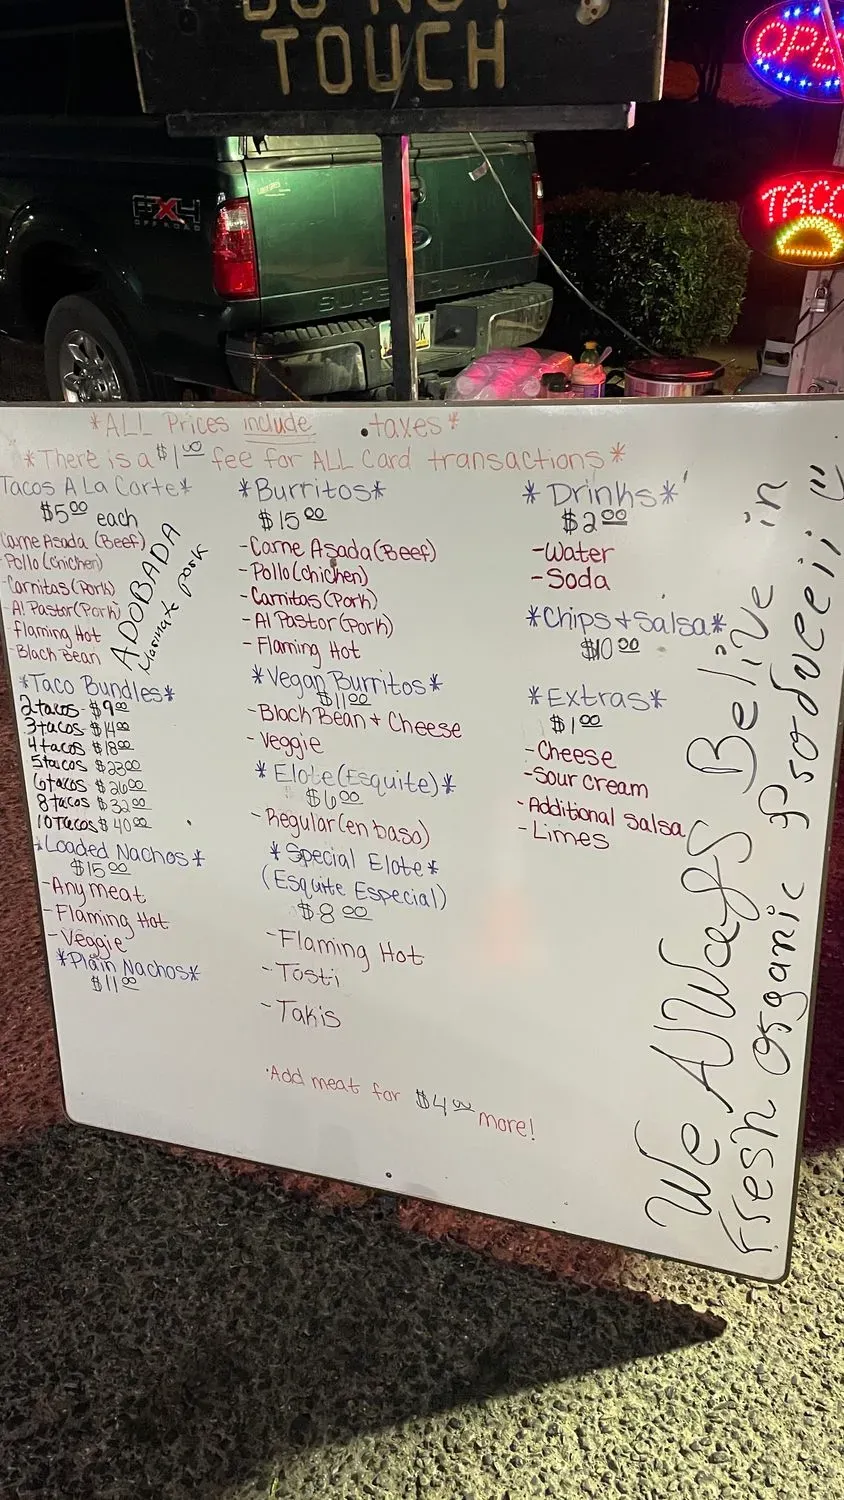 DO NOT
TOUCH
OPE
TACO
FX4
OFF ROAD
SUPER DUTY
*ALL Prices include taxes*
*There is a $1.00 fee for ALL Card transactions*
Tacos A La Carte*
$5.00 each
Carne Asada (Beef)
-Pollo (chicken)
-Carnitas (Pork)
-Al Pastor (Pork)
-flaming Hot
-Black Bean
ADOBADA
Marinate pork
*Taco Bundles*
2 tacos-$9.00
3 tacos-$14.00
4 tacos $18.00
5 tacos $23.00
6 tacos $26.00
8 tacos $32.00
10 Tacos $40.00
*Loaded Nachos*
$15.00
-Any meat
-Flaming Hot
-Veggie
*Plain Nachos*
$11.00
*Burritos*
$15.00
-Carne Asada (Beef)
-Pollo (chicken)
-Carnitas (Pork)
-Al Pastor (Pork)
-Flaming Hot
*Vegan Burritos*
$11.00
-Black Bean + Cheese
-Veggie
*Elote (Esquite)*
$6.00
-Regular (en baso)
*Special Elote*
(Esquite Especial)
$8.00
-Flaming Hot
-Tosti
-Takis
·Add meat for $4.00 more!
*Drinks*
$2.00
-Water
-Soda
*Chips + Salsa*
$10.00
*Extras*
$1.00
-Cheese
-Sour cream
-Additional Salsa
-Limes
We AlWayS Belive in
Fresh organic Produceii